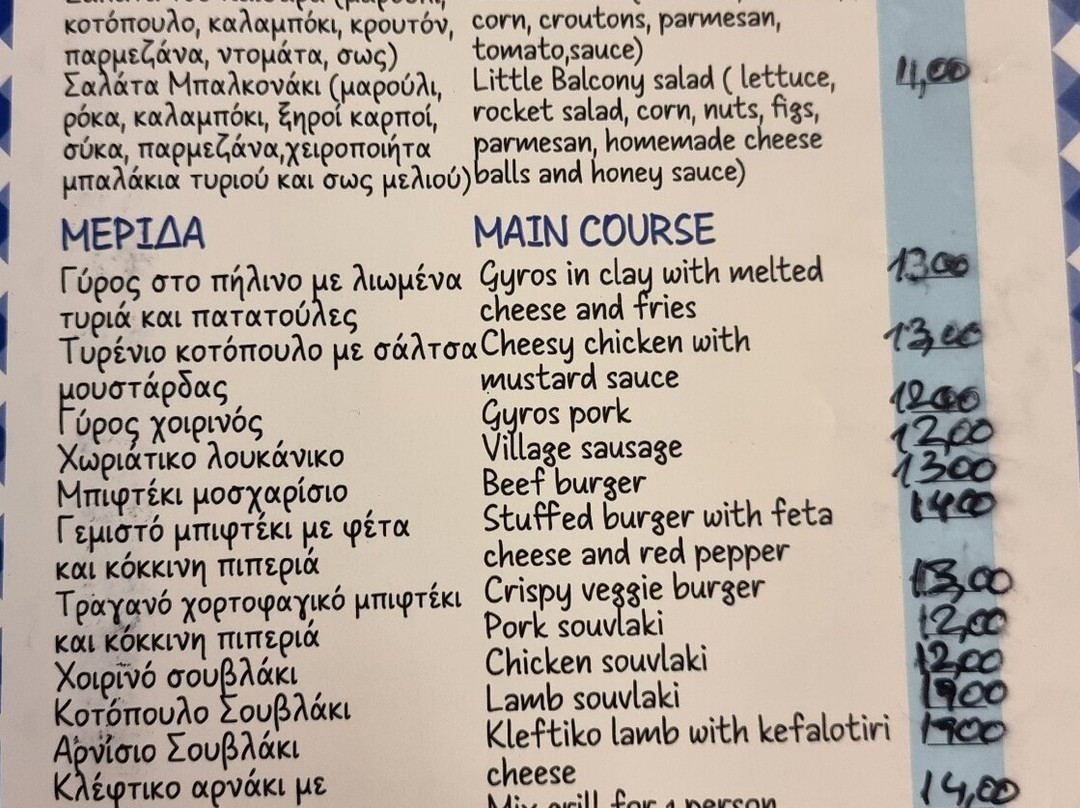 κοτόπουλο, καλαμπόκι, κρουτόν, corn, croutons, parmesan,
παρμεζάνα, ντομάτα, σως) tomato,sauce)
Σαλάτα Μπαλκονάκι (μαρούλι, Little Balcony salad ( lettuce, 11,00
ρόκα, καλαμπόκι, ξηροί καρποί, rocket salad, corn, nuts, figs,
σύκα, παρμεζάνα,χειροποιήτα parmesan, homemade cheese
μπαλάκια τυριού και σως μελιού) balls and honey sauce)
ΜΕΡΙΔΑ MAIN COURSE
Γύρος στο πήλινο με λιωμένα Gyros in clay with melted 1300
τυριά και πατατούλες cheese and fries
Τυρένιο κοτόπουλο με σάλτσα Cheesy chicken with 13,00
μουστάρδας mustard sauce
Γύρος χοιρινός Gyros pork 1200
Χωριάτικο λουκάνικο Village sausage 12,00
Μπιφτέκι μοσχαρίσιο Beef burger 1300
Γεμιστό μπιφτέκι με φέτα Stuffed burger with feta 1400
και κόκκινη πιπεριά cheese and red pepper
Τραγανό χορτοφαγικό μπιφτέκι Crispy veggie burger 13,00
και κόκκινη πιπεριά Pork souvlaki 12,00
Χοιρινό σουβλάκι Chicken souvlaki 12,00
Κοτόπουλο Σουβλάκι Lamb souvlaki 1900
Αρνίσιο Σουβλάκι Kleftiko lamb with kefalotiri 1900
Κλέφτικο αρνάκι με cheese
Mix grill for 1 person 14,00